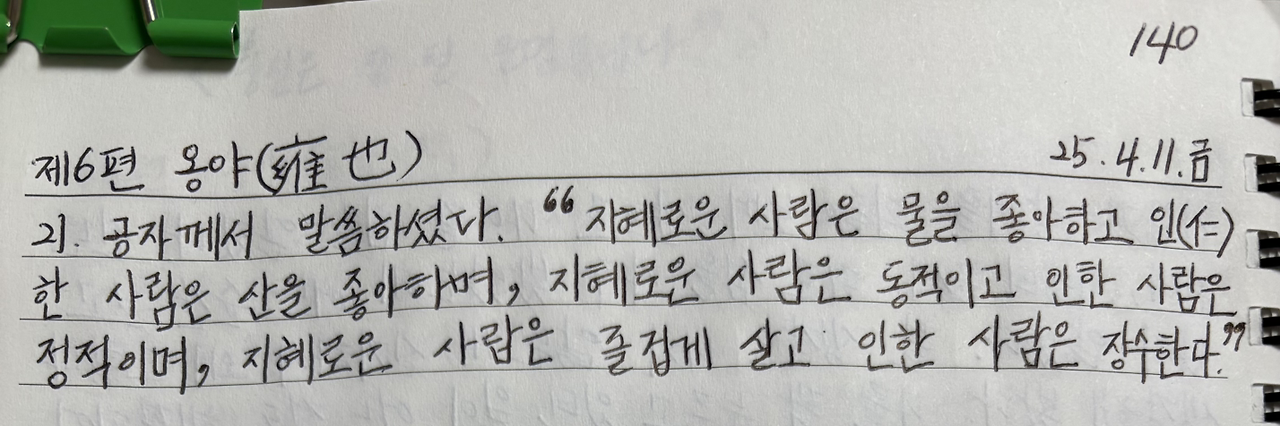 140
제6편 옹야(雍也) 25.4.11.금
21. 공자께서 말씀하셨다. "지혜로운 사람은 물을 좋아하고 인(仁)
한 사람은 산을 좋아하며, 지혜로운 사람은 동적이고 인한 사람은
정적이며, 지혜로운 사람은 즐겁게 살고 인한 사람은 장수한다."